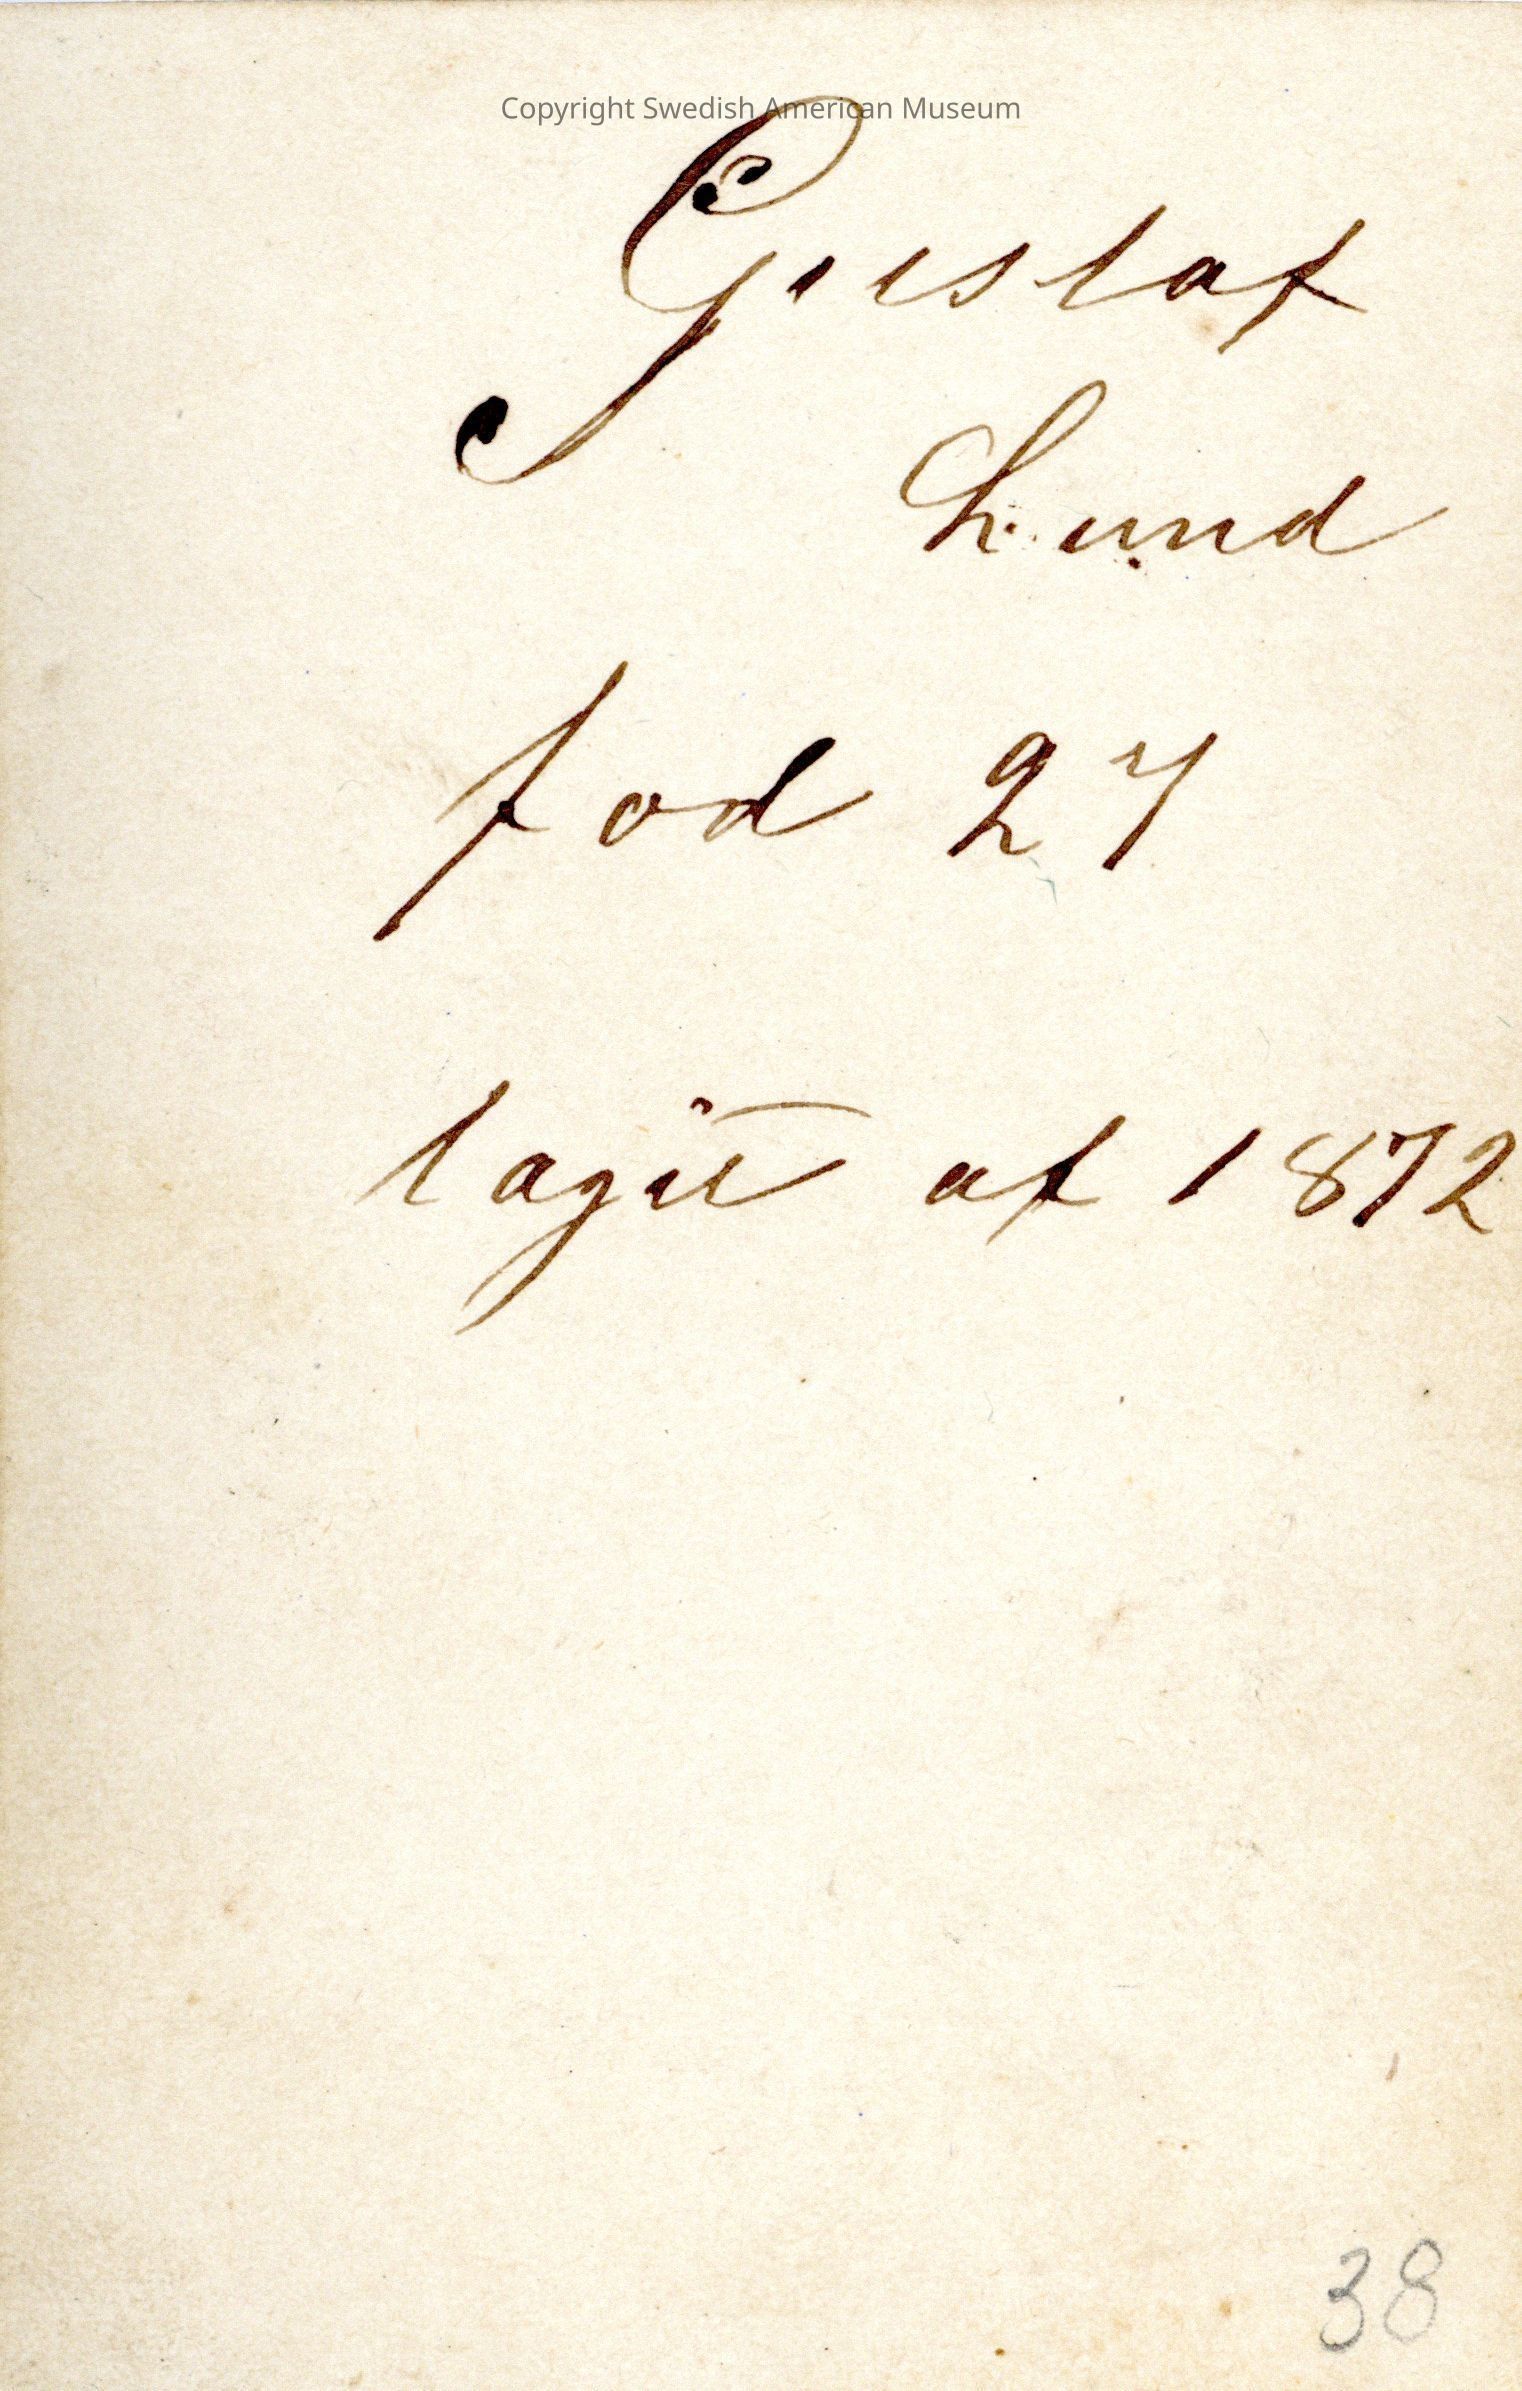 Copyright Swedish American Museum
Gustaf
Lund
fod 27
tagit af 1872
38